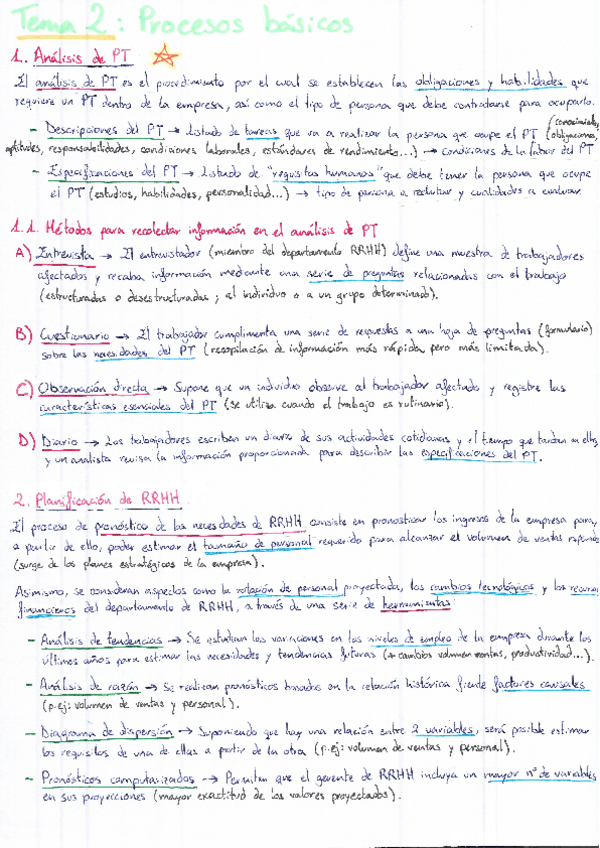 Tema 2: Procesos básicos
1. Análisis de PT
El análisis de PT es el procedimiento por el cual se establecen las obligaciones y habilidades que
requiere un PT dentro de la empresa, así como el tipo de persona que debe contratarse para ocuparlo.
- Descripciones del PT → Listado de tareas que va a realizar la persona que ocupe el PT (obligaciones, (conocimientos,
aptitudes, responsabilidades, condiciones laborales, estándares de rendimiento...) → Condiciones de la labor del PT
- Especificaciones del PT → Listado de "requisitos humanos" que debe tener la persona que ocupe
el PT (estudios, habilidades, personalidad...) → tipo de persona a reclutar y cualidades a evaluar.
1.1. Métodos para recolectar información en el análisis de PT
A) Entrevista → El entrevistador (miembro del departamento RRHH) define una muestra de trabajadores
afectados y recaba información mediante una serie de preguntas relacionadas con el trabajo
(estructuradas o desestructuradas; al individuo o a un grupo determinado).
B) Cuestionario → El trabajador cumplimenta una serie de respuestas a una hoja de preguntas (formulario)
sobre las necesidades del PT (recopilación de información más rápida, pero más limitada).
C) Observación directa → Supone que un individuo observe al trabajador afectado y registre las
características esenciales del PT (se utiliza cuando el trabajo es rutinario).
D) Diario → Los trabajadores escriben un diario de sus actividades cotidianas y el tiempo que tardan en ellas
y un analista revisa la información proporcionada para describir las especificaciones del PT.
2. Planificación de RRHH
El proceso de pronóstico de las necesidades de RRHH consiste en pronosticar los ingresos de la empresa para,
a partir de ello, poder estimar el tamaño de personal requerido para alcanzar el volumen de ventas
(surge de los planes estratégicos de la empresa).
Asimismo, se consideran aspectos como la rotación de personal proyectada, los cambios tecnológicos y los recursos
financieros del departamento de RRHH, a través de una serie de herramientas:
- Análisis de tendencias → Se estudian las variaciones en los niveles de empleo de la empresa durante los
últimos años para estimar las necesidades y tendencias futuras (+ cambios volumen ventas, productividad...).
- Análisis de razón → Se realizan pronósticos basados en la relación histórica frente factores causales
(p.ej: volumen de ventas y personal).
- Diagrama de dispersión → Suponiendo que hay una relación entre 2 variables, será posible estimar
los requisitos de una de ellas a partir de la otra (p.ej: volumen de ventas y personal).
- Pronósticos computarizados → Permiten que el gerente de RRHH incluya un mayor nº de variables
en sus proyecciones (mayor exactitud de los valores proyectados).